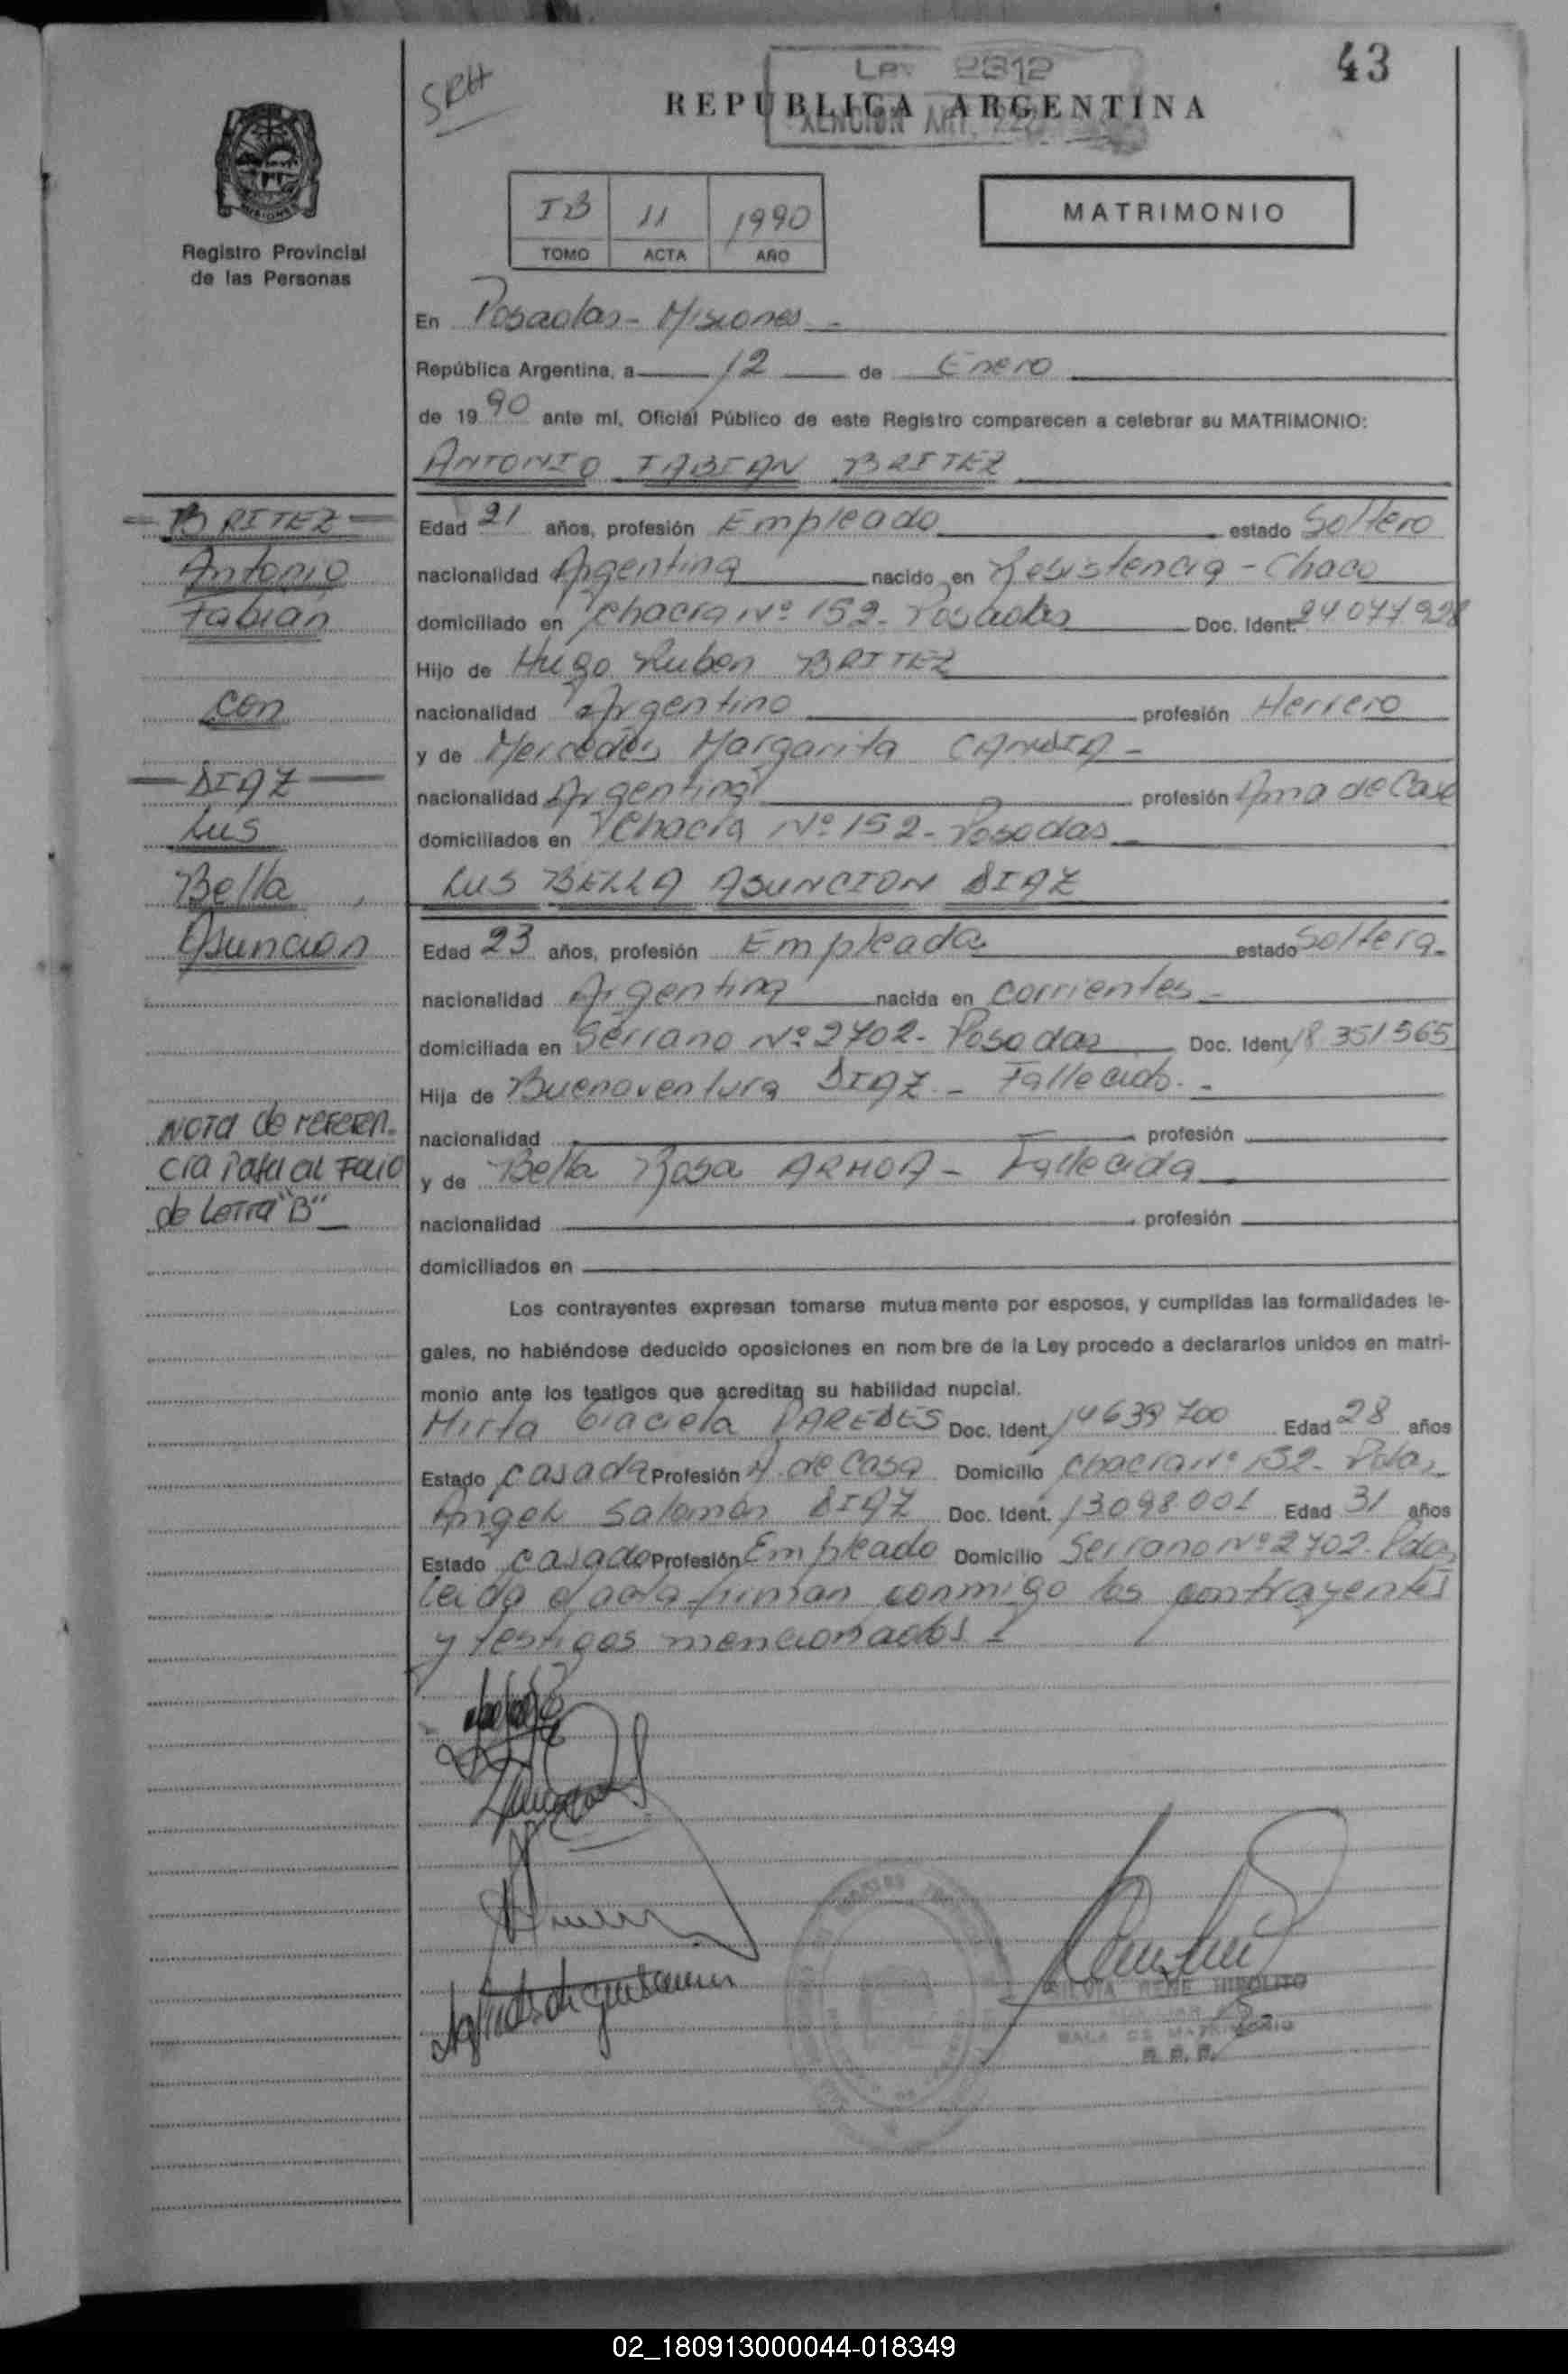 43
SRH
Ley 2312
REPUBLICA ARGENTINA
MISIONES
Registro Provincial
de las Personas
IB 11 1990
TOMO ACTA AÑO
MATRIMONIO
En Posadas - Misiones -
República Argentina, a 12 de Enero
de 1990 ante mí, Oficial Público de este Registro comparecen a celebrar su MATRIMONIO:
ANTONIO FABIAN BRITEZ
Edad 21 años, profesión Empleado estado Soltero
nacionalidad Argentina nacido en Resistencia - Chaco
domiciliado en Chacra Nº 152 - Posadas Doc. Ident.
Hijo de Hugo Ruben BRITEZ
nacionalidad Argentino profesión Herrero
y de Mercedes Margarita
nacionalidad Argentina profesión Ama de Casa
domiciliados en Chacra Nº 152 - Posadas
LUS BELLA ASUNCION DIAZ
Edad 23 años, profesión Empleada estado Soltera -
nacionalidad Argentina nacida en Corrientes -
domiciliada en Serrano Nº 2702 - Posadas Doc. Ident. 18 351 565
Hija de Buenaventura DIAZ - Fallecido. -
nacionalidad profesión
y de Bella Rosa ARMOA - Fallecida
nacionalidad profesión
domiciliados en
Los contrayentes expresan tomarse mutuamente por esposos, y cumplidas las formalidades le-
gales, no habiéndose deducido oposiciones en nombre de la Ley procedo a declararlos unidos en matri-
monio ante los testigos que acreditan su habilidad nupcial.
Mirta Graciela PAREDES Doc. Ident. 14639700 Edad 28 años
Estado casada Profesión A. de Casa Domicilio Chacra Nº 152 - Pdas
Angel Salomón DIAZ Doc. Ident. 13098001 Edad 31 años
Estado casado Profesión Empleado Domicilio Serrano Nº 2702 - Pdas
leida el acta firman conmigo los contrayentes
y testigos mencionados -
= BRITEZ =
Antonio
Fabian
con
— DIAZ —
Lus
Bella
Asuncion
NOTA de referen-
cia Pasa al Folio
de Letra "B"
SILVIA RENE HIPOLITO
SALA DE MATRIMONIO
02_180913000044-018349